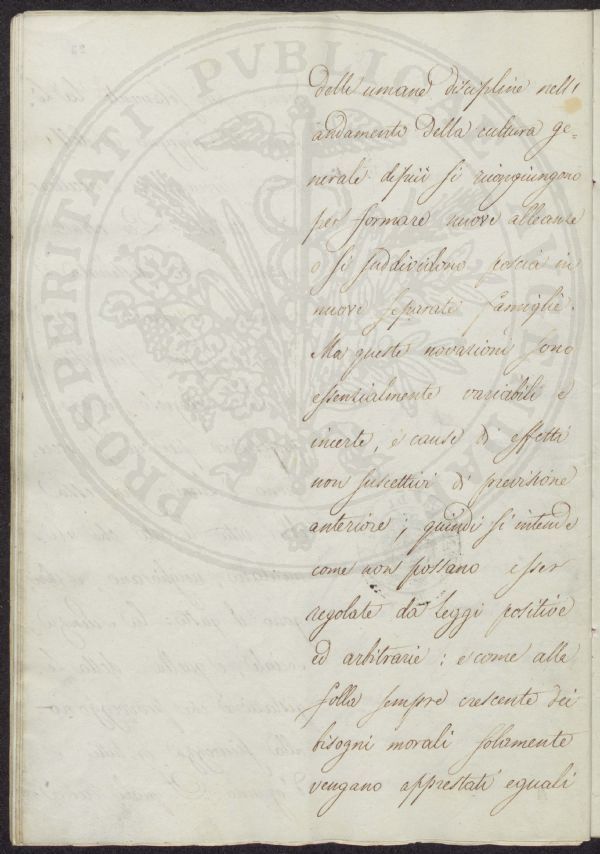 delle umane discipline nell'
andamento della cultura ge=
nerale si ricongiungono
per formare nuove alleanze
o si suddividono poscia in
nuove separate famiglie.
Ma queste novazioni sono
essenzialmente variabili e
incerte, e cause di effetti
non suscettivi di previsione
anteriore; quindi si intende
come non possano esser
regolate da leggi positive
ed arbitrarie: e come alla
folla sempre crescente dei
bisogni morali solamente
vengano apprestati eguali
PROSPERITATI PUBLICAE